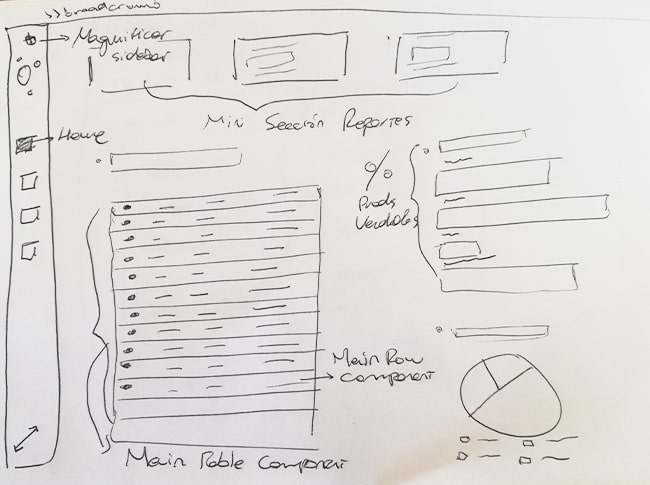 >>breadcrumb
Magnificar
sidebar
Home
Mini Sección Reportes
%
Prods
Main Row
Component
Main Table Component